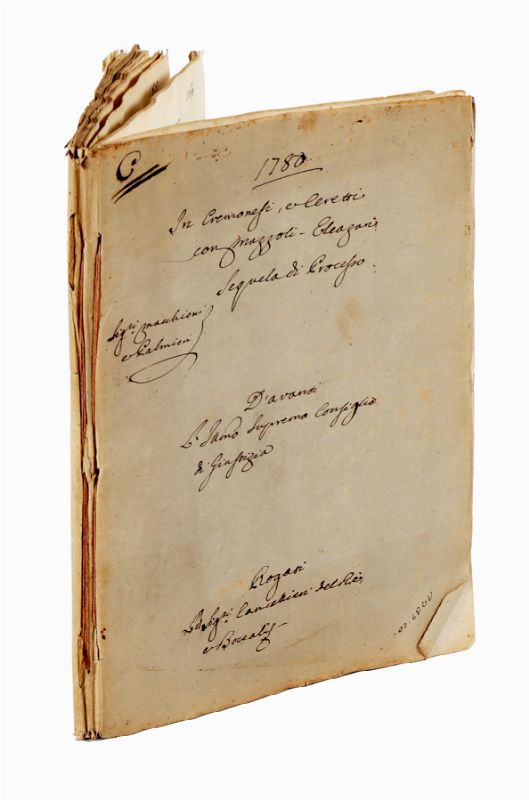 C
1780
In Cremonesi, e Ceretti
con Mazzoli - Eleazari
Sequela di Processo
Sigri Macchioni
e Palmieri
D'avanti
Supremo Consiglio
di Giustizia
Rogati
Cancellieri del
e Boccali